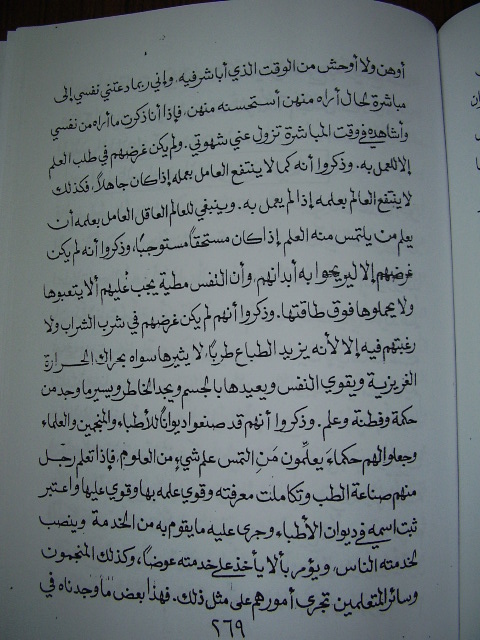 أوهن ولا أوحش من الوقت الذي أباشر فيه، وإني ربما دعتني نفسي إلى
مباشرة لحال أراه منهن أستحسنه منهن، فإذا أنا ذكرت ما أراه من نفسي
وأشاهده في وقت المباشرة تزول عني شهوتي. ولم يكن غرضهم في طلب العلم
إلا للعمل به. وذكروا أنه كما لا ينتفع العامل بعمله إذا كان جاهلاً، فكذلك
لا ينتفع العالم بعلمه إذا لم يعمل به. وينبغي للعالم العاقل العامل بعلمه أن
يعلم من يلتمس منه العلم إذا كان مستحقاً مستوجباً، وذكروا أنه لم يكن
غرضهم إلا ليريحوا به أبدانهم، وأن النفس مطية يجب عليهم ألا يتعبوها
ولا يحملوها فوق طاقتها. وذكروا أنهم لم يكن غرضهم في شرب الشراب ولا
رغبتهم فيه إلا لأنه يزيد الطباع طرباً، لا يثيرها سواه بحراك الحرارة
الغريزية ويقوي النفس ويعيدها بالجسم ويحد الخاطر ويسير ما وجد من
حكمة وفطنة وعلم. وذكروا أنهم قد صنعوا ديواناً للأطباء والمنجمين والعلماء
وجعلوا لهم حكماءَ يعلِّمون مَنِ التمس علم شيءٍ من العلوم، فإذا تعلم رجل
منهم صناعة الطب وتكاملت معرفته وقوي علمه بها وقوي عليها واعتبر
ثبت اسمه في ديوان الأطباء وجرى عليه ما يقوم به من الخدمة وينصب
لخدمته الناس، ويؤمر بألا يأخذ على خدمته عوضاً، وكذلك المنجمون
وسائر المتعلمين تجرى أمورهم على مثل ذلك. فهذا بعض ما وجدناه في
٢٦٩